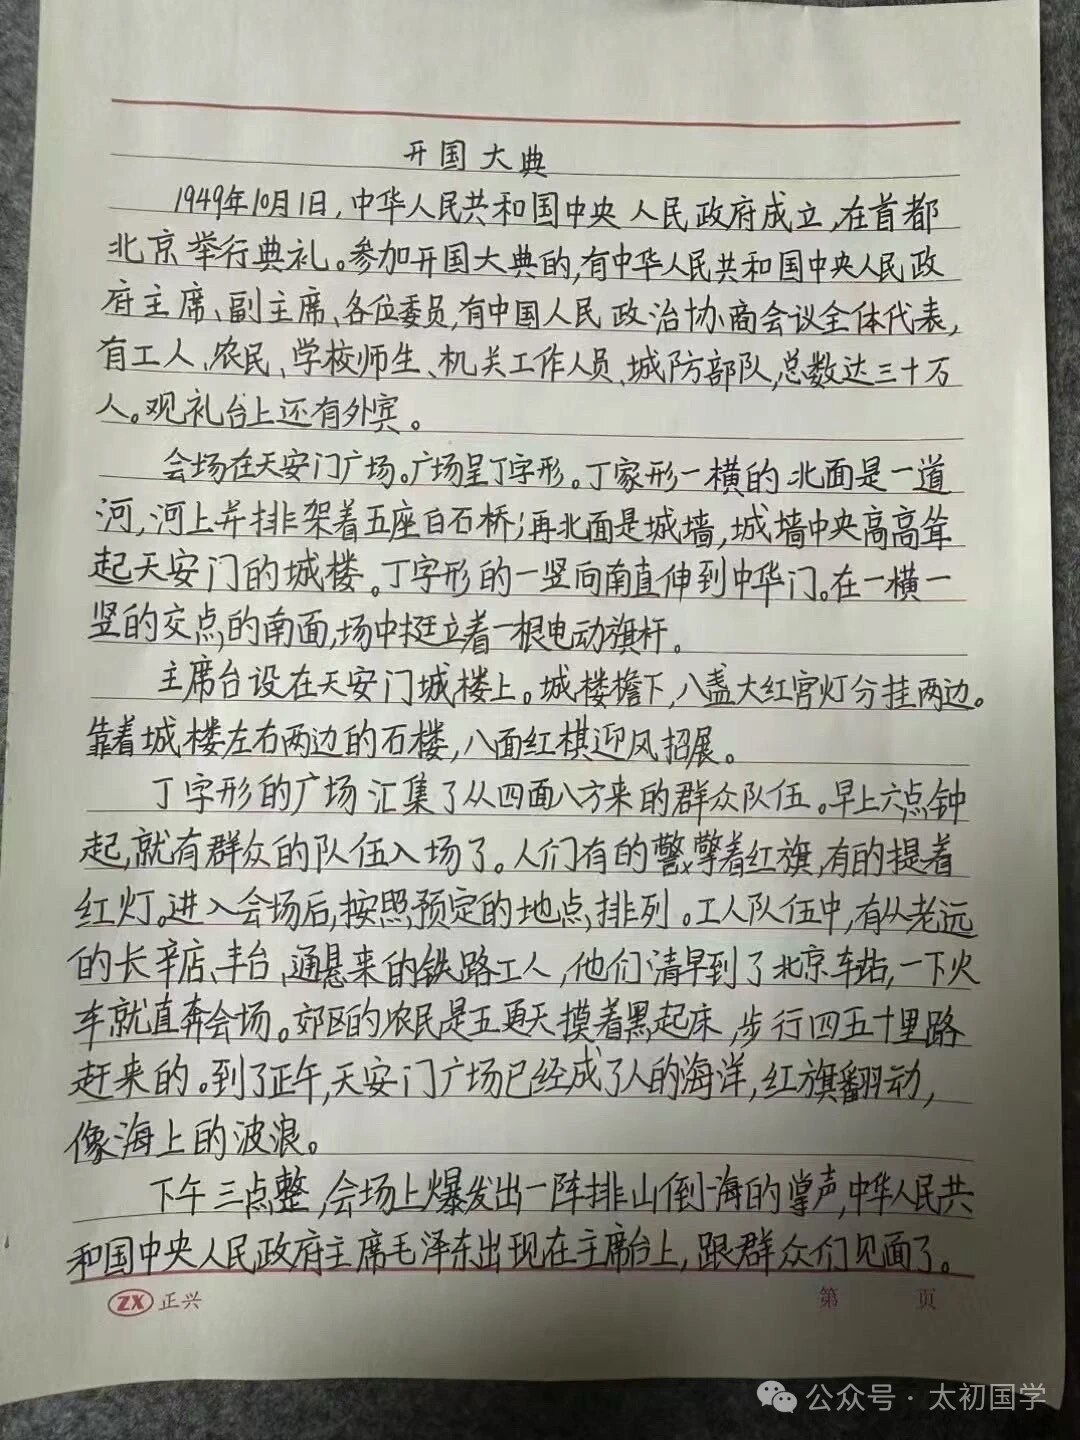 开国大典
1949年10月1日,中华人民共和国中央人民政府成立,在首都
北京举行典礼。参加开国大典的,有中华人民共和国中央人民政
府主席、副主席、各位委员,有中国人民政治协商会议全体代表,
有工人、农民、学校师生、机关工作人员、城防部队,总数达三十万
人。观礼台上还有外宾。
会场在天安门广场。广场呈丁字形。丁家形一横的北面是一道
河,河上并排架着五座白石桥;再北面是城墙,城墙中央高高耸
起天安门的城楼。丁字形的一竖向南直伸到中华门。在一横一
竖的交点的南面,场中挺立着一根电动旗杆。
主席台设在天安门城楼上。城楼檐下,八盏大红宫灯分挂两边。
靠着城楼左右两边的石楼,八面红棋迎风招展。
丁字形的广场汇集了从四面八方来的群众队伍。早上六点钟
起,就有群众的队伍入场了。人们有的擎着红旗,有的提着
红灯。进入会场后,按照预定的地点排列。工人队伍中,有从老远
的长辛店、丰台、通县来的铁路工人,他们清早到了北京车站,一下火
车就直奔会场。郊区的农民是五更天摸着黑起床,步行四五十里路
赶来的。到了正午,天安门广场已经成了人的海洋,红旗翻动,
像海上的波浪。
下午三点整,会场上爆发出一阵排山倒海的掌声,中华人民共
和国中央人民政府主席毛泽东出现在主席台上,跟群众们见面了。
ZX 正兴 第 页
公众号·太初国学